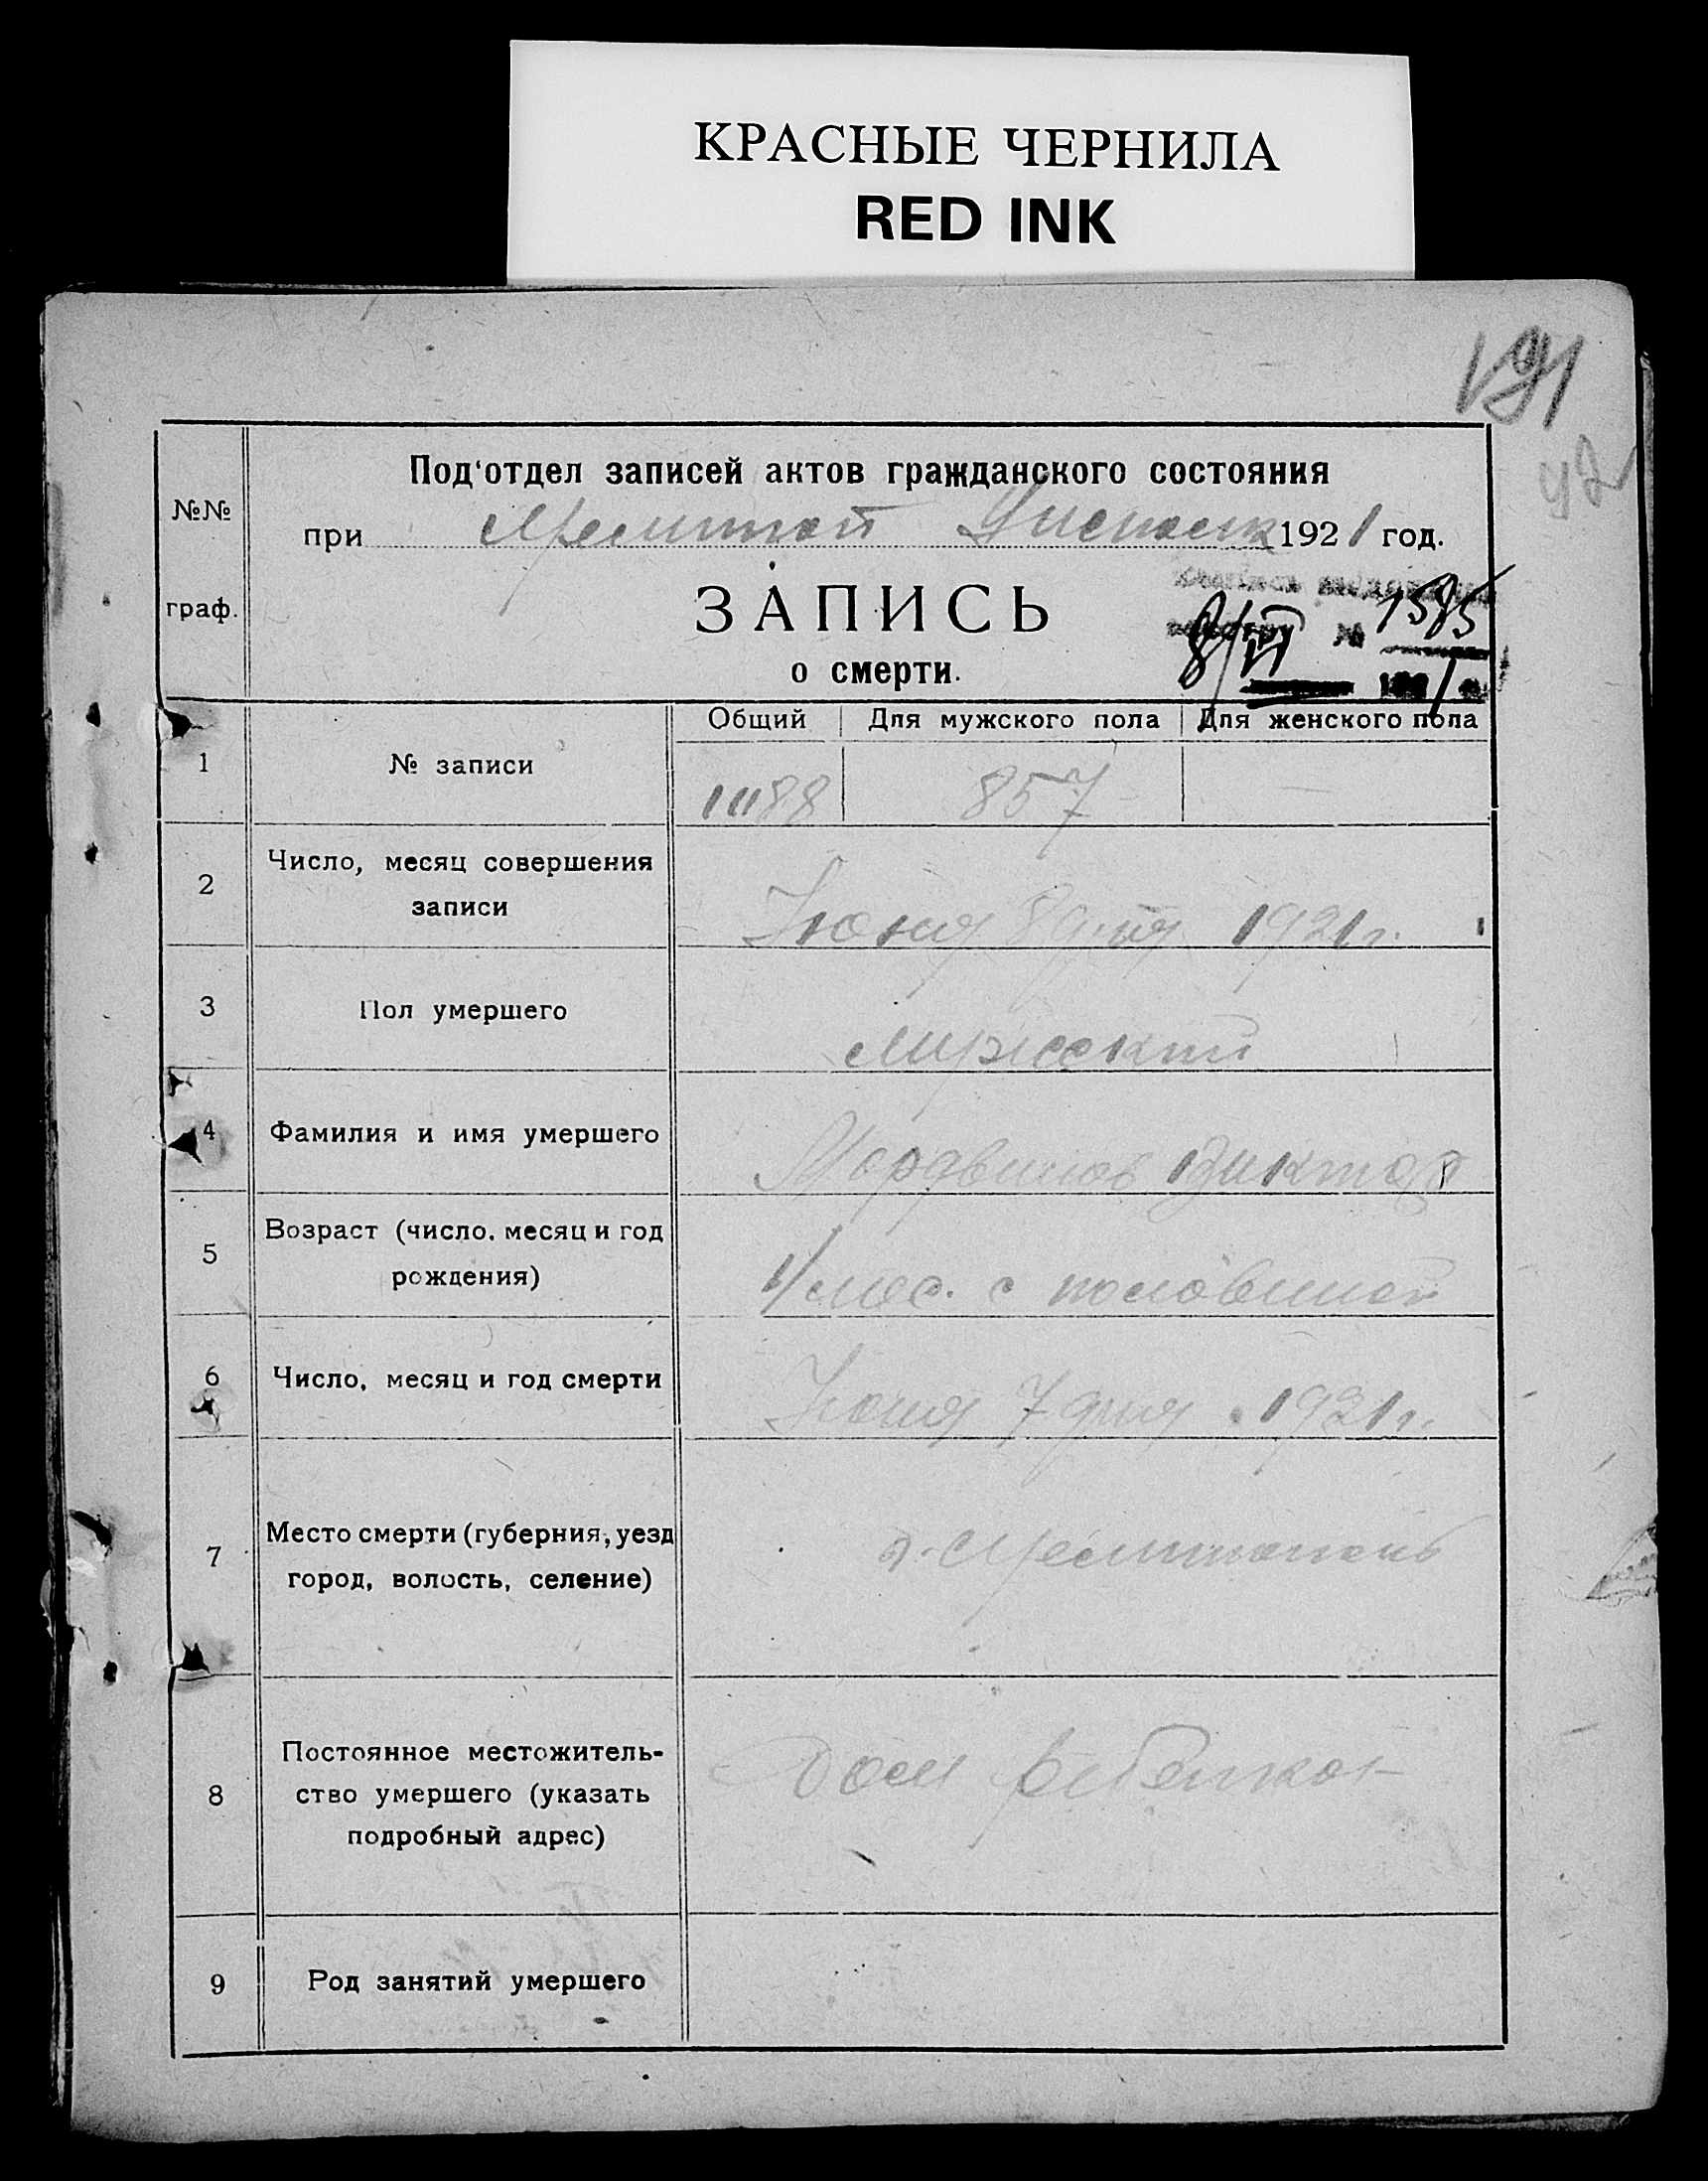 КРАСНЫЕ ЧЕРНИЛА
RED INK
191
42
№№ граф.
Под'отдел записей актов гражданского состояния
при 1921 год.
ЗАПИСЬ
о смерти.
8/VI № 1585
Общий Для мужского пола Для женского пола
1 № записи 857 —
2 Число, месяц совершения
записи
Июня 8 дня 1921 г.
3 Пол умершего
мужской
4 Фамилия и имя умершего
Мордвинов Виктор
5 Возраст (число, месяц и год
рождения)
1/мес. с половиной
6 Число, месяц и год смерти
Июня 7 дня 1921 г.
7 Место смерти (губерния, уезд
город, волость, селение)
г.
8 Постоянное местожитель-
ство умершего (указать
подробный адрес)
Дом ребенка
9 Род занятий умершего